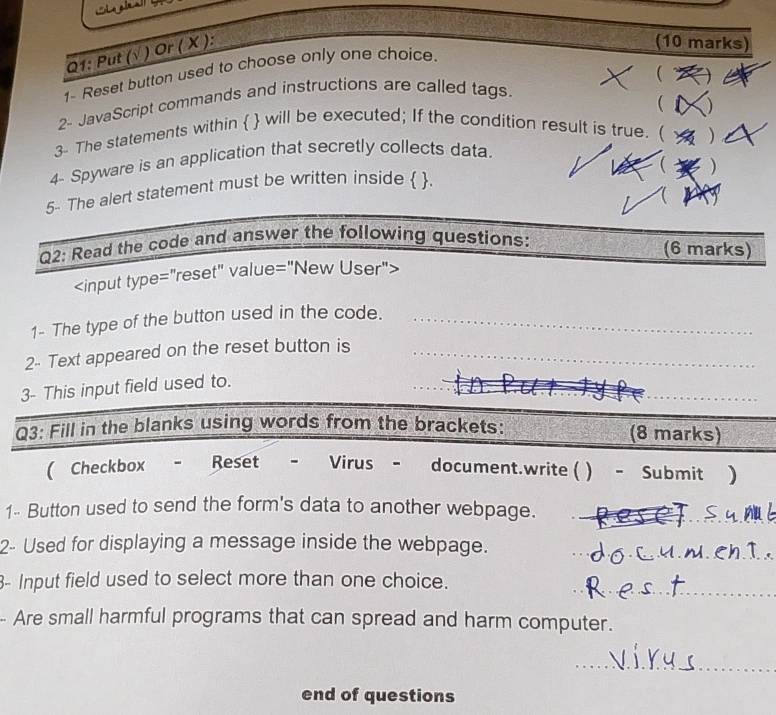 Q1: Put (√) Or ( X ): (10 marks)
1- Reset button used to choose only one choice. X ( )
2- JavaScript commands and instructions are called tags. ( X )
3- The statements within { } will be executed; If the condition result is true. ( )
4- Spyware is an application that secretly collects data. ✓ ( )
5- The alert statement must be written inside { }. ✓ ( )
Q2: Read the code and answer the following questions: (6 marks)
<input type="reset" value="New User">
1- The type of the button used in the code. ....................
2- Text appeared on the reset button is ....................
3- This input field used to. input type
Q3: Fill in the blanks using words from the brackets: (8 marks)
( Checkbox - Reset - Virus - document.write ( ) - Submit )
1- Button used to send the form's data to another webpage. Reset
2- Used for displaying a message inside the webpage. document.
3- Input field used to select more than one choice. Rest
- Are small harmful programs that can spread and harm computer.
virus
end of questions